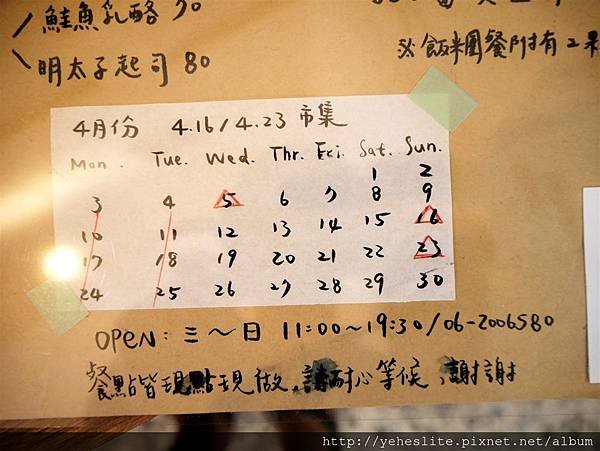 鮭魚乳酪 70
明太子起司 80
※飯糰餐附有2果
4月份 4.16/4.23 市集
Mon. Tue. Wed. Thr. Fri. Sat. Sun.
1 2
3 4 5 6 7 8 9
10 11 12 13 14 15 16
17 18 19 20 21 22 23
24 25 26 27 28 29 30
OPEN: 三~日 11:00~19:30/06-2006580
餐點皆現點現做,請耐心等候,謝謝
http://yeheslite.pixnet.net/album